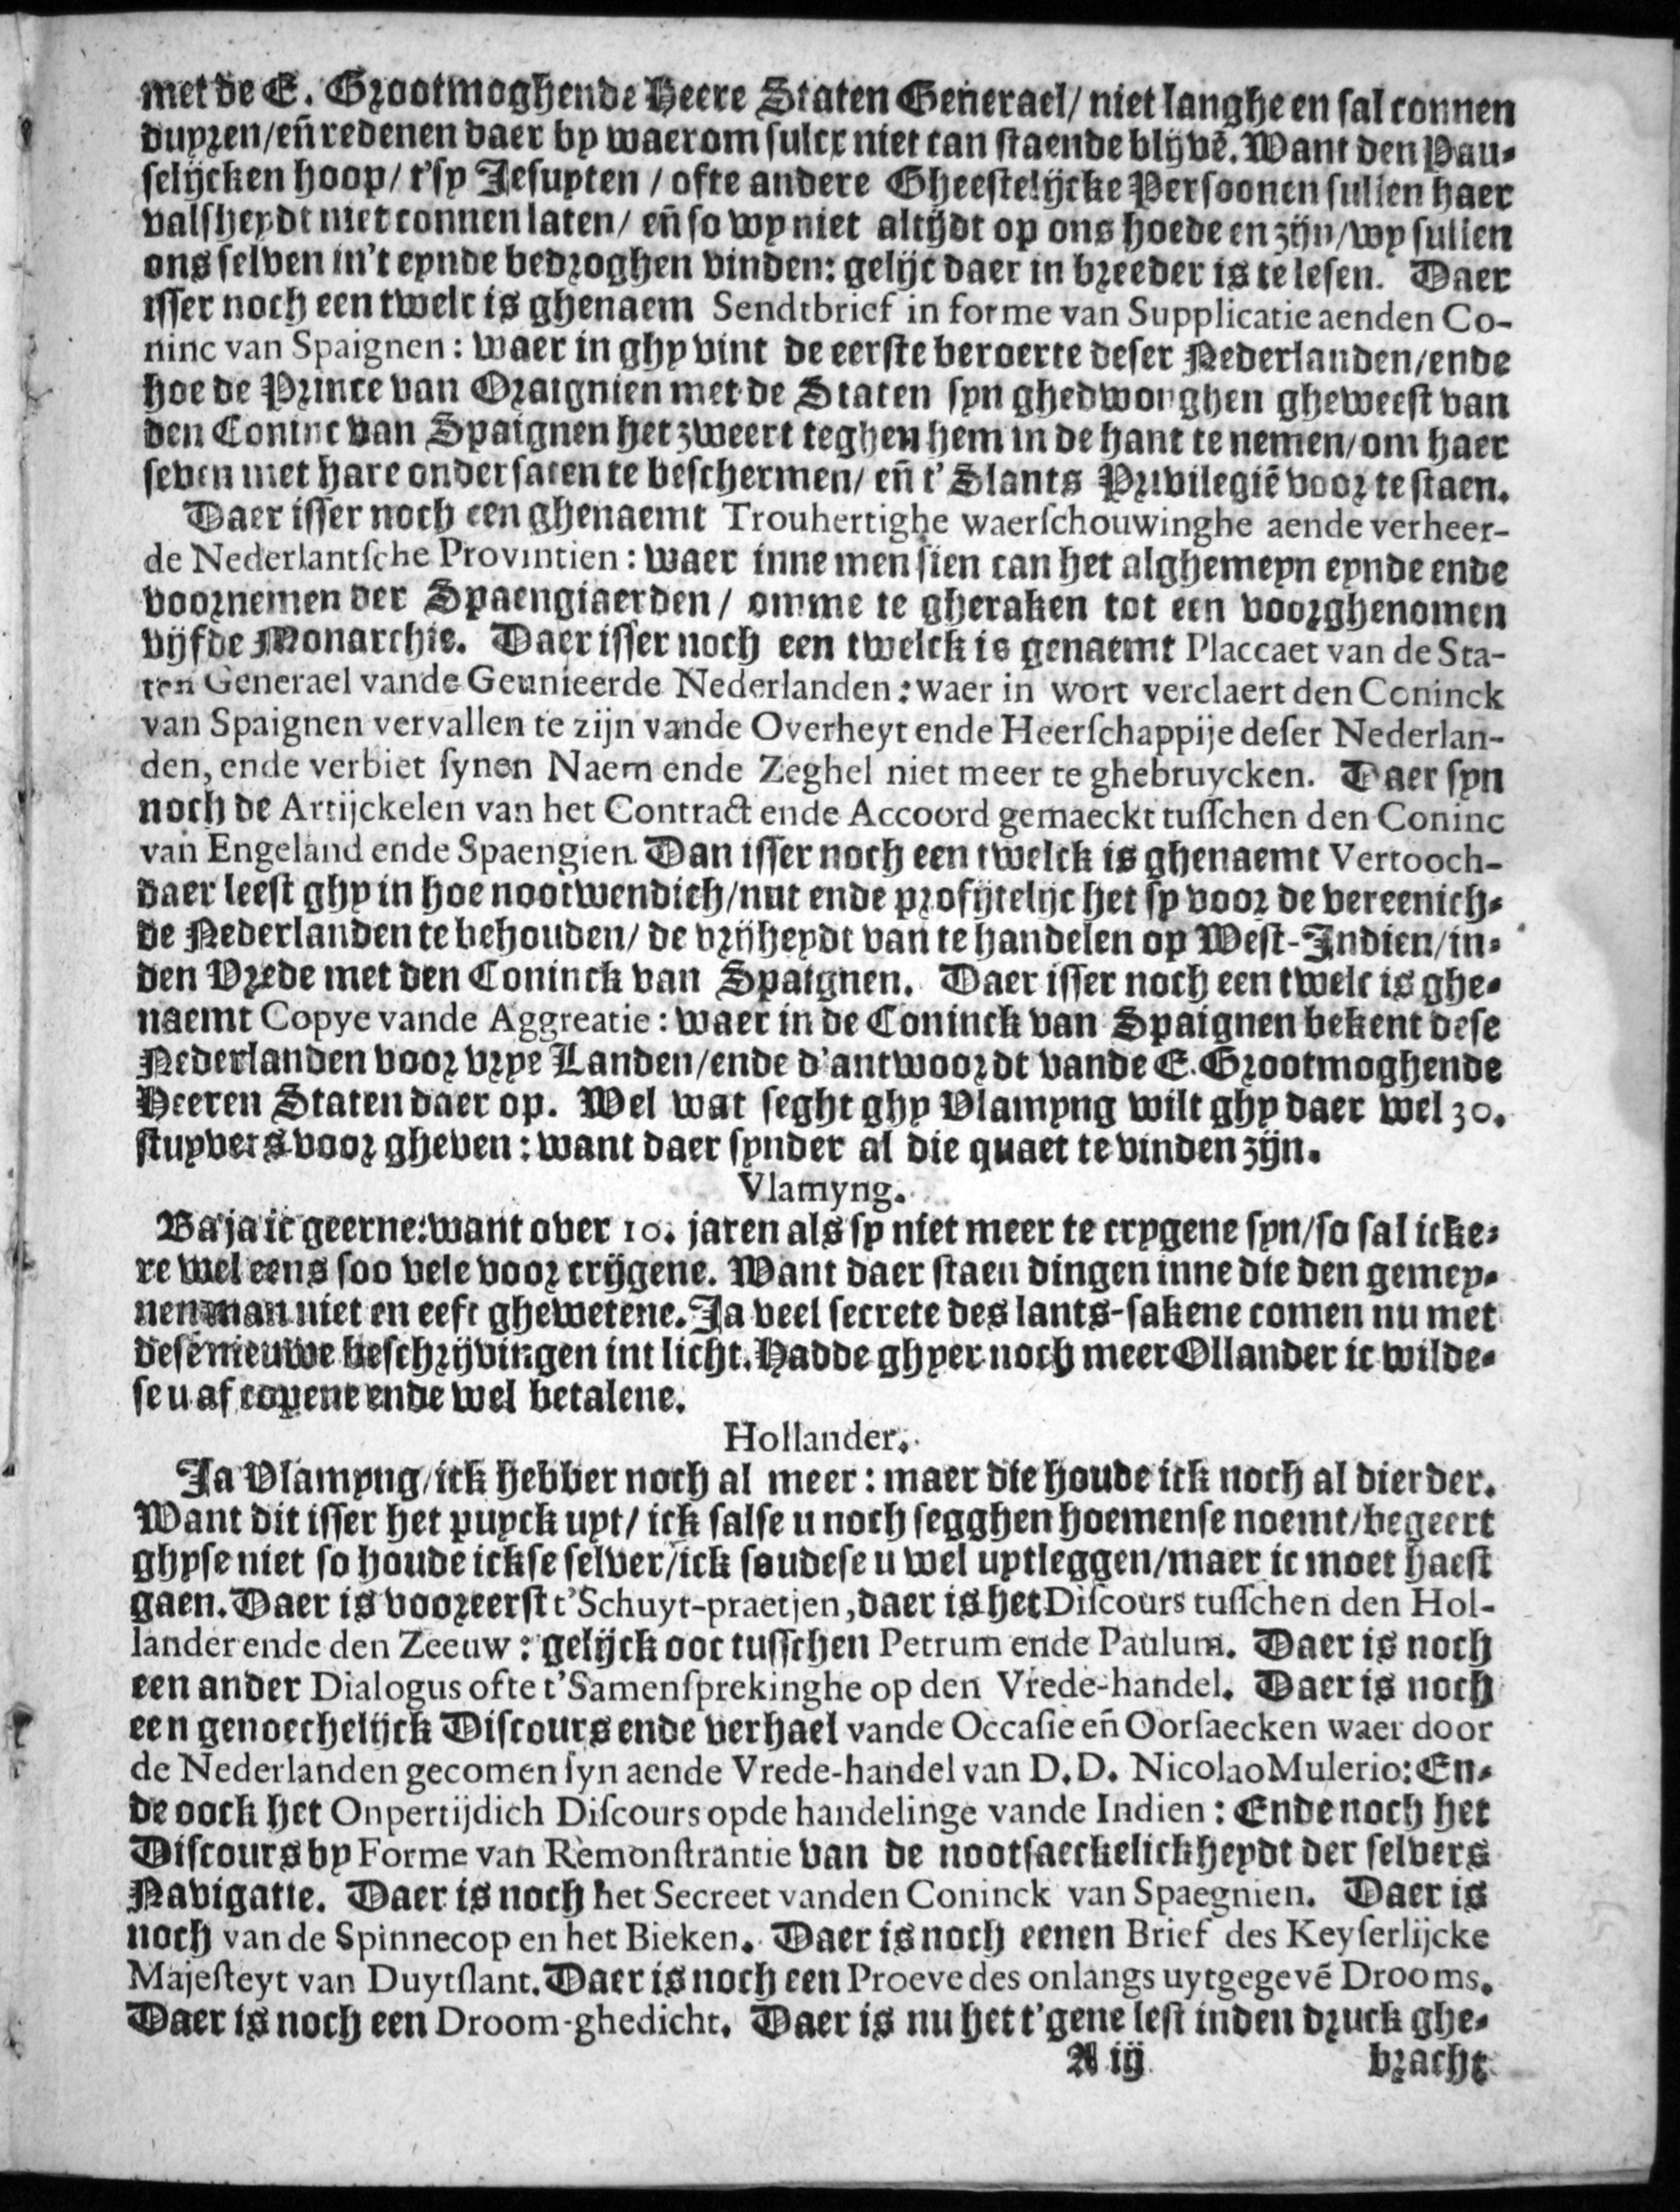 met de E. Grootmoghende Heere Staten Generael/ niet langhe en sal connen
duyren/en̄ redenen daer by waerom sulcx niet can staende blijvē. Want den Pau-
selijcken hoop/ t'sy Jesuyten / ofte andere Gheestelijcke Persoonen sullen haer
valsheydt niet connen laten/ en̄ so wy niet altijdt op ons hoede en zijn/wy sullen
ons selven in't eynde bedroghen vinden: gelijc daer in breeder is te lesen. Daer
isser noch een twelc is ghenaem Sendtbrief in forme van Supplicatie aenden Co-
ninc van Spaignen: waer in ghy vint de eerste beroerte deser Nederlanden/ende
hoe de Prince van Oraignien met de Staten syn ghedwonghen gheweest van
den Coninc van Spaignen het zweert teghen hem in de hant te nemen/om haer
seven met hare ondersaten te beschermen/ en̄ t'Slants Privilegiē voor te staen.
Daer isser noch een ghenaemt Trouhertighe waerschouwinghe aende verheer-
de Nederlantsche Provintien: waer inne men sien can het alghemeyn eynde ende
voornemen der Spaengiaerden / omme te gheraken tot een voorghenomen
vijfde Monarchie. Daer isser noch een twelck is genaemt Placcaet van de Sta-
ten Generael vande Geunieerde Nederlanden: waer in wort verclaert den Coninck
van Spaignen vervallen te zijn vande Overheyt ende Heerschappije deser Nederlan-
den, ende verbiet synen Naem ende Zeghel niet meer te ghebruycken. Daer syn
noch de Artijckelen van het Contract ende Accoord gemaeckt tusschen den Coninc
van Engeland ende Spaengien. Dan isser noch een twelck is ghenaemt Vertooch-
daer leest ghy in hoe nootwendich/nut ende profijtelijc het sy voor de vereenich-
de Nederlanden te behouden/ de vrijheydt van te handelen op West-Indien/in-
den Vrede met den Coninck van Spaignen. Daer isser noch een twelc is ghe-
naemt Copye vande Aggreatie: waer in de Coninck van Spaignen bekent dese
Nederlanden voor vrye Landen/ende d'antwoordt vande E. Grootmoghende
Heeren Staten daer op. Wel wat seght ghy Vlamyng wilt ghy daer wel 30.
stuyvers voor gheven: want daer synder al die quaet te vinden zijn.
Vlamyng.
Ba ja ic geerne: want over 10. jaren als sy niet meer te crygene syn/so sal icke-
re wel eens soo vele voor crijgene. Want daer staen dingen inne die den gemey-
nen man niet en eeft ghewetene. Ja veel secrete des lants-sakene comen nu met
dese nieuwe beschrijvingen int licht. Hadde ghyer noch meer Ollander ic wilde-
se u af copene ende wel betalene.
Hollander.
Ja Vlamyng/ick hebber noch al meer: maer die houde ick noch al dierder.
Want dit isser het puyck uyt/ ick salse u noch segghen hoemense noemt/begeert
ghyse niet so houde ickse selver/ick soudese u wel uytleggen/maer ic moet haest
gaen. Daer is vooreerst t'Schuyt-praetjen, daer is het Discours tusschen den Hol-
lander ende den Zeeuw: gelijck ooc tusschen Petrum ende Paulum. Daer is noch
een ander Dialogus ofte t'Samensprekinghe op den Vrede-handel. Daer is noch
een genoechelijck Discours ende verhael vande Occasie en̄ Oorsaecken waer door
de Nederlanden gecomen syn aende Vrede-handel van D.D. Nicolao Mulerio: En-
de oock het Onpertijdich Discours opde handelinge vande Indien: Ende noch het
Discours by Forme van Remonstrantie van de nootsaeckelickheydt der selvers
Navigatie. Daer is noch het Secreet vanden Coninck van Spaegnien. Daer is
noch van de Spinnecop en het Bieken. Daer is noch eenen Brief des Keyserlijcke
Majesteyt van Duytslant. Daer is noch een Proeve des onlangs uytgegevē Drooms.
Daer is noch een Droom-ghedicht. Daer is nu het t'gene lest inden druck ghe-
A iij bracht